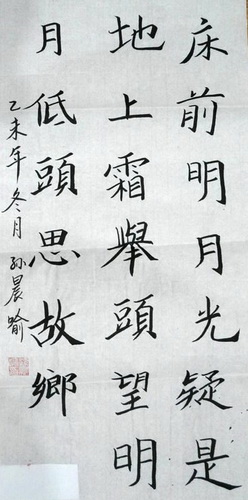 床前明月光疑是
地上霜舉頭望明
月低頭思故鄉
乙未年冬月孙晨喻